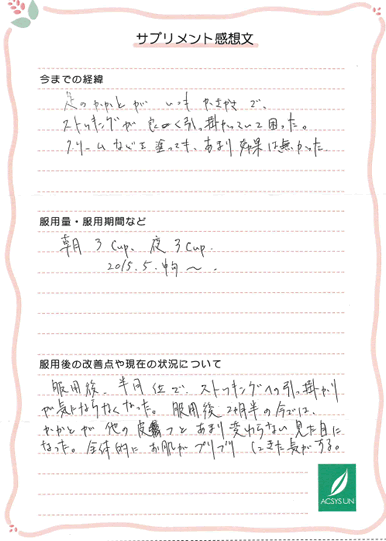 サプリメント感想文
今までの経緯
足のかかとが いつも かさかさ で、
ストッキングが よく引っ掛かっていて困った。
クリームなどを塗っても、あまり効果は無かった
服用量・服用期間など
朝 3 Cup、夜 3 Cup.
2015.5.中旬〜.
服用後の改善点や現在の状況について
服用後、半月位で、ストッキングへの引っ掛かり
が気にならなくなった。服用後2ヶ月半の今では、
かかとが他の皮フとあまり変わらない見た目に
なった。全体的にお肌がプリプリしてきた気がする。
ACSYSUN